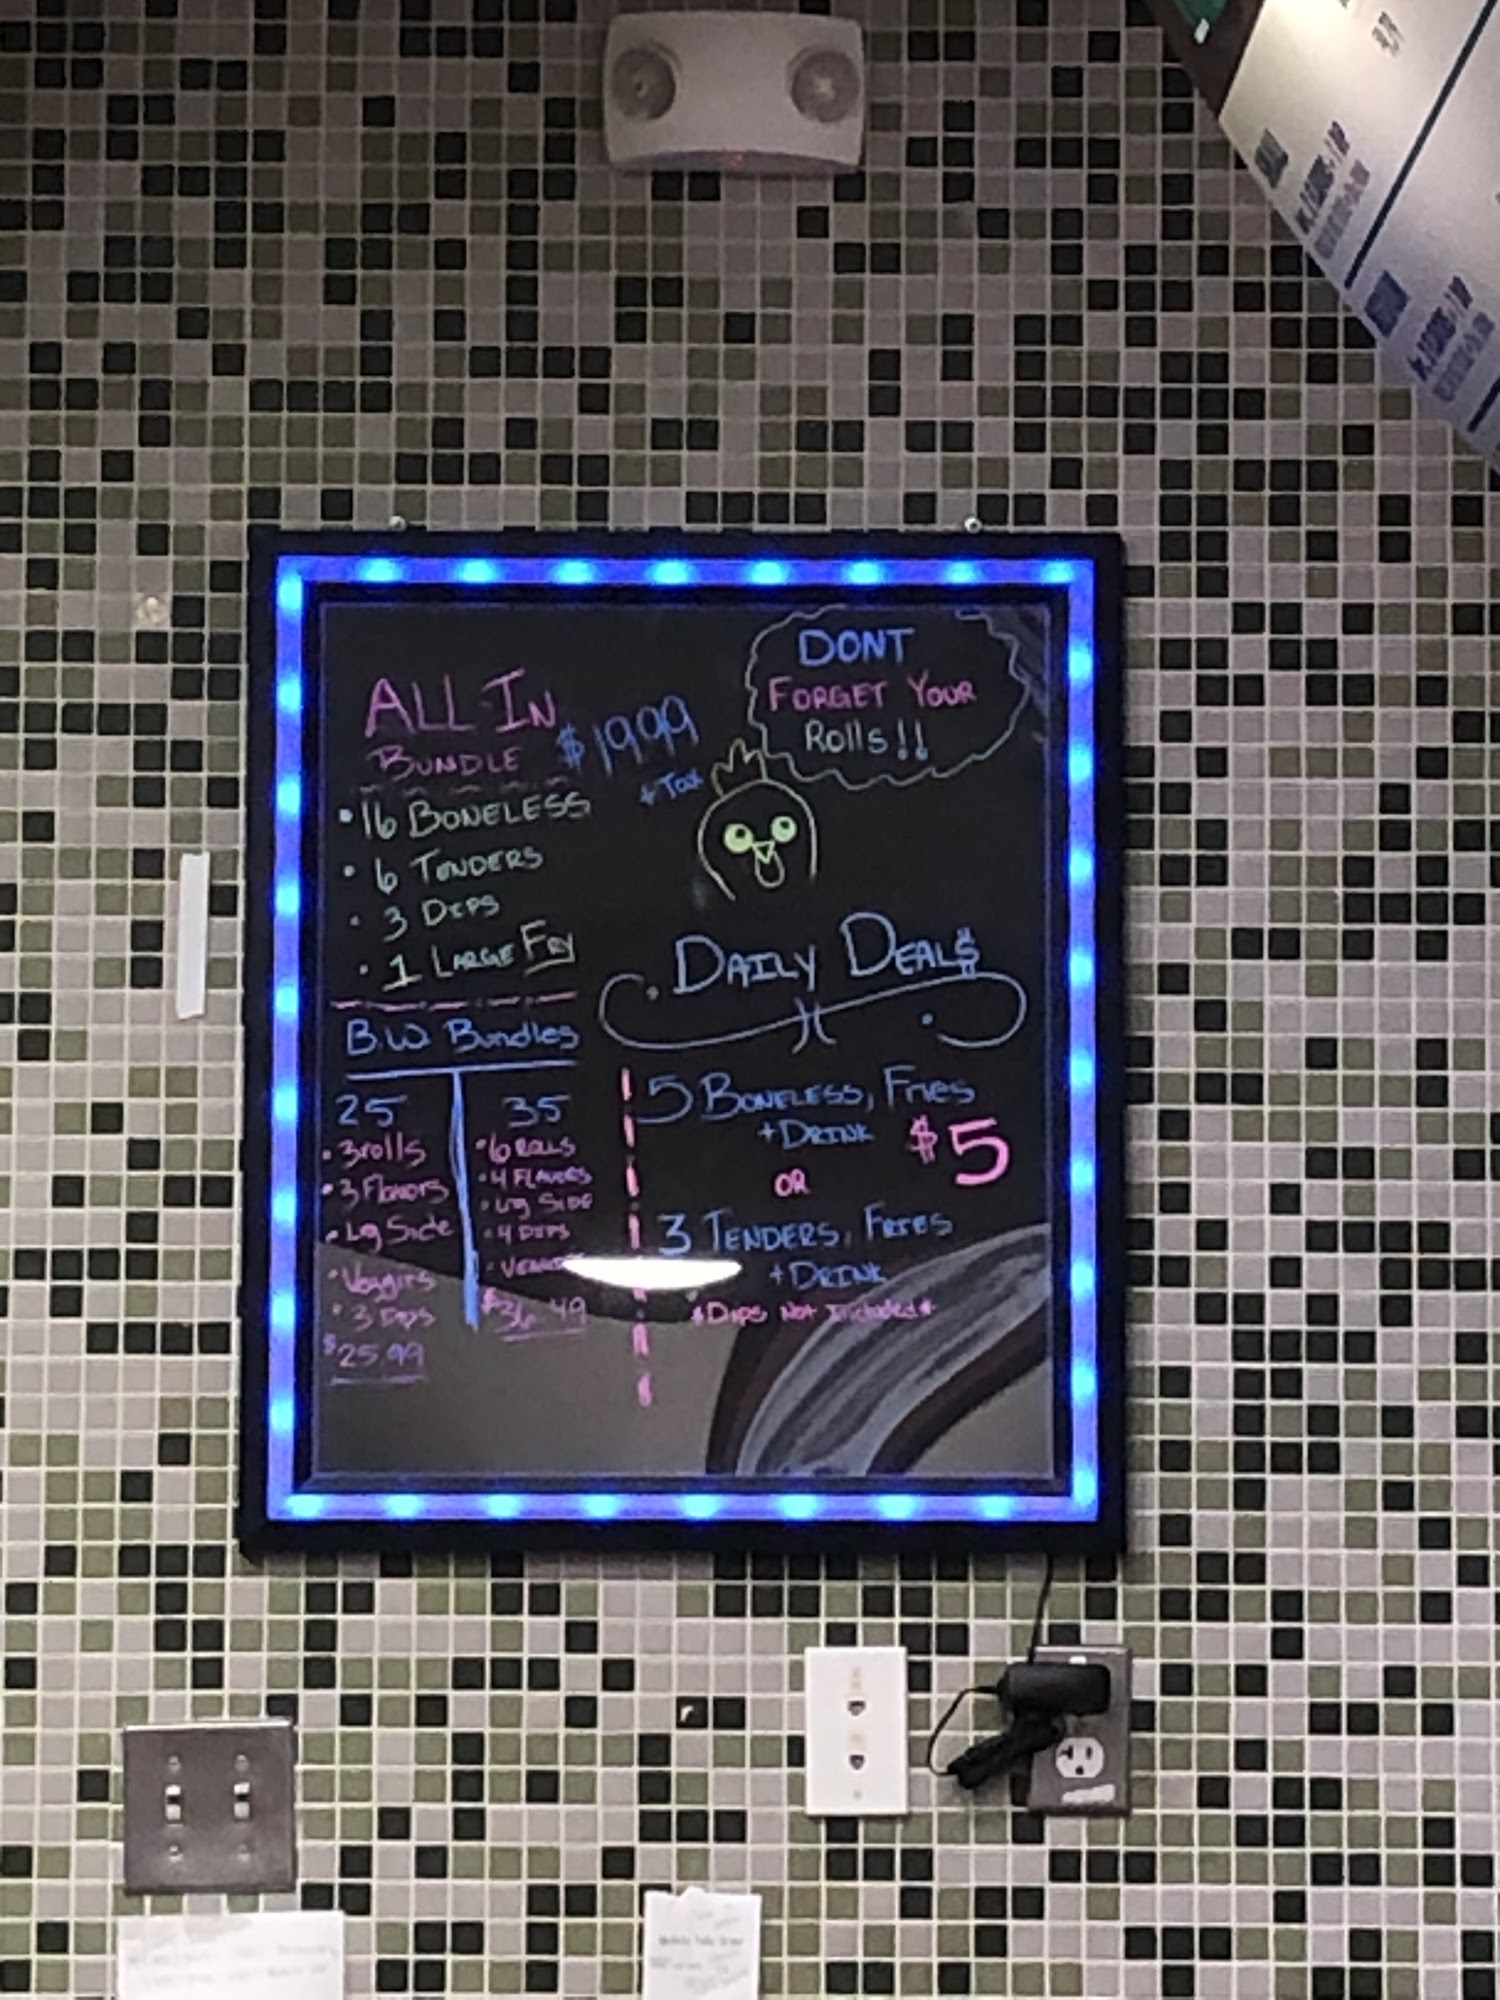 DONT
FORGET YOUR
Rolls!!
ALL IN
BUNDLE
$1999
+Tax
• 16 BONELESS
• 6 TENDERS
• 3 DIPS
• 1 LARGE FRY
B.W. Bundles
25
• 3rolls
• 3 Flavors
• Lg Side
• Veggies
• 3 Dips
$25.99
35
• 6 ROLLS
• 4 FLAVORS
• Lg SIDE
• 4 DIPS
$36.49
DAILY DEAL$
5 BONELESS, Fries
+ DRINK
$5
OR
3 TENDERS, FRIES
+ DRINK
*Dips Not Included*